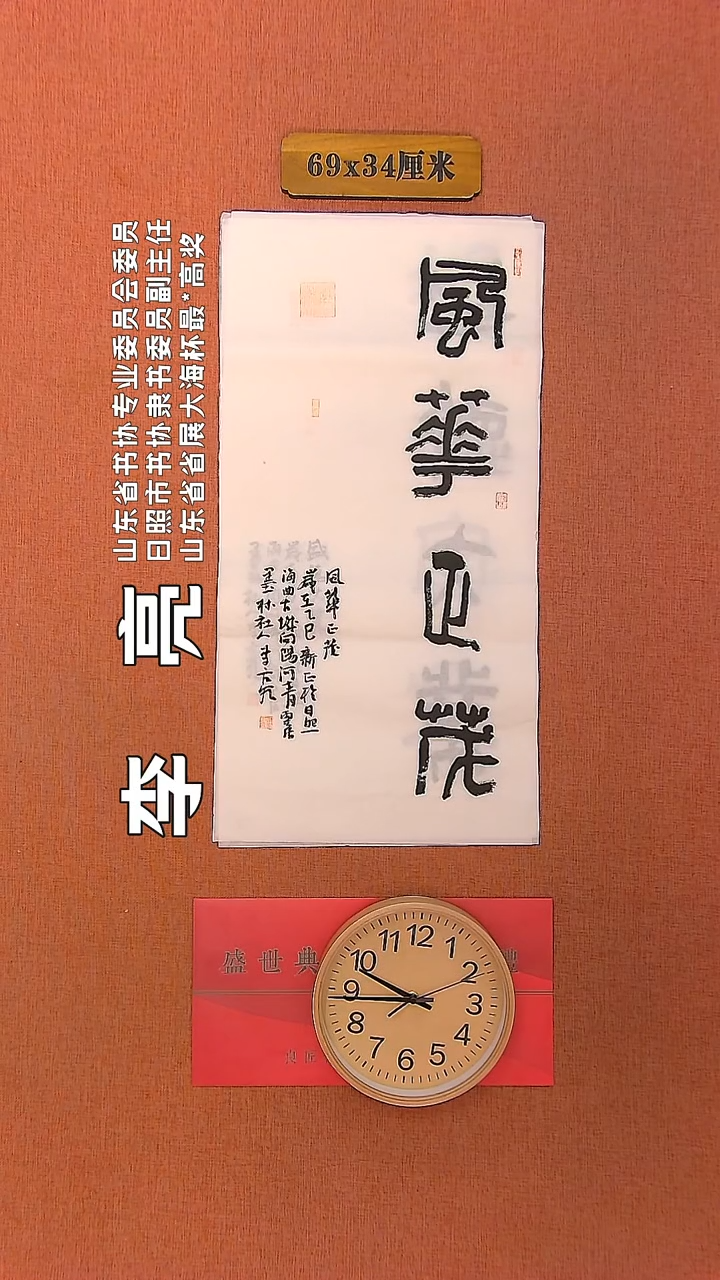 69x34厘米
山东省书协专业委员会委员
日照市书协隶书委员副主任
山东省省展大海杯最*高奖
李 亮
風
華
正
茂
風華正茂
歲在乙巳新正於日照
海曲古城向陽河青雲居
墨林社人李亮
盛世典
12
1
2
3
4
5
6
7
8
9
10
11